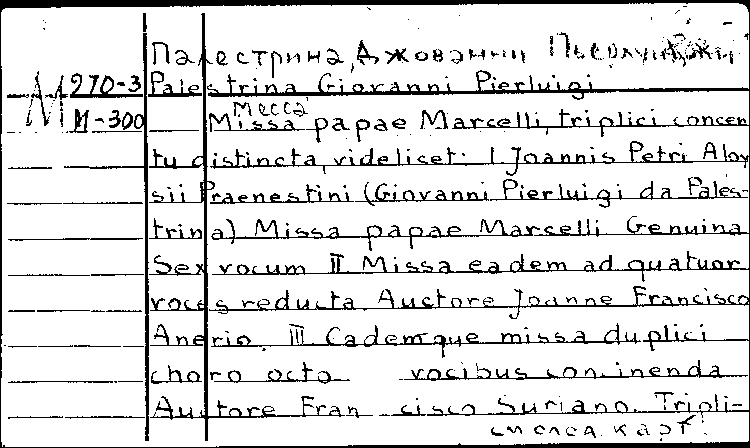 Палестрина, Джованни Пьерлуиджи
М 970-3 Palestrina Giovanni Pierluigi
Месса
М-300 Missa papae Marcelli, triplici concen
tu distincta, videlicet: I. Joannis Petri Aloy
sii Praenestini (Giovanni Pierluigi da Pales-
trina) Missa papae Marcelli Genuina
Sex vocum II Missa eadem ad quatuor
voces reducta. Auctore Joanne Francisco
Anerio. III Cademque missa duplici
choro octo vocibus con.inenda
Auctore Fran cisco Suriano. Tripli-
см след. карт.